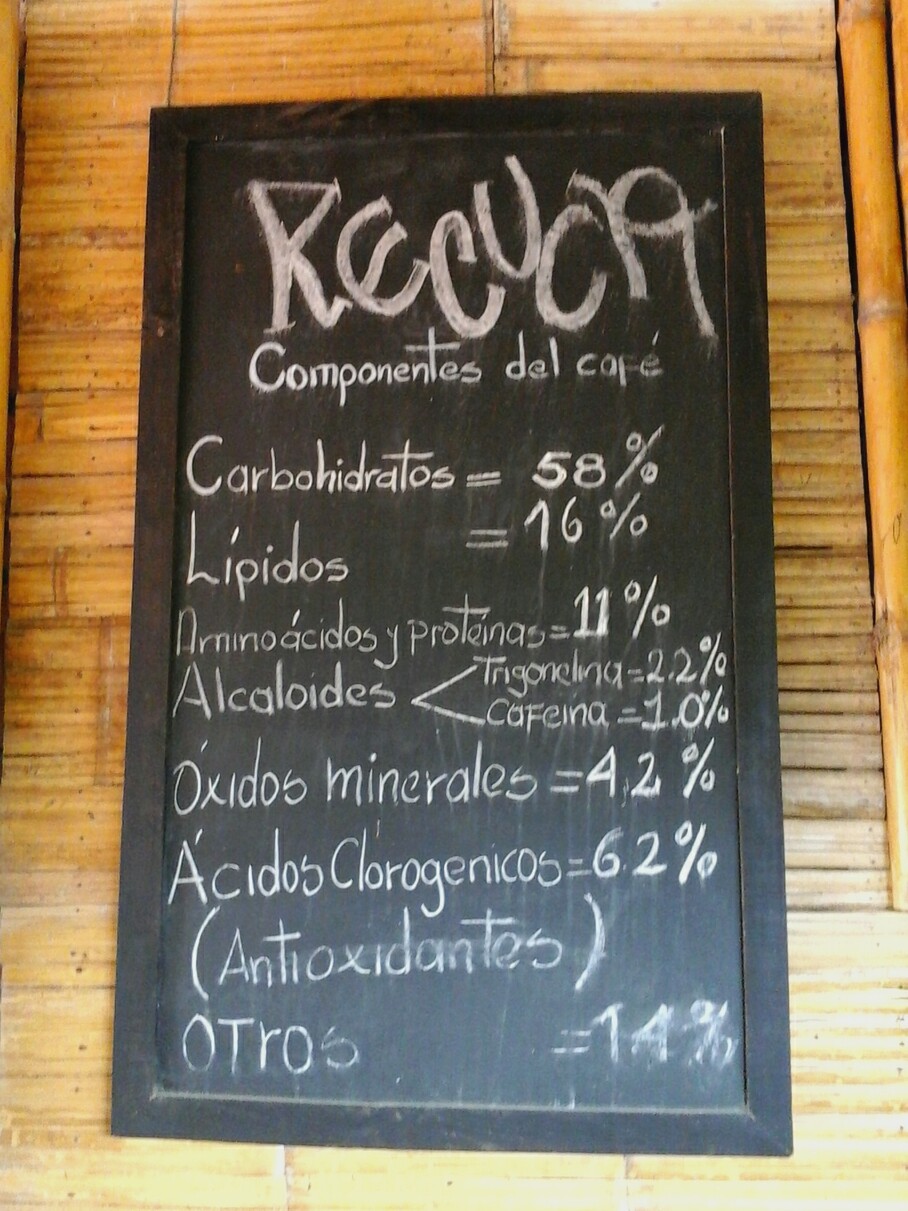 RECUCA
Componentes del café
Carbohidratos = 58%
Lípidos = 16%
Aminoácidos y proteínas = 11%
Alcaloides < Trigonelina = 2.2%
Cafeina = 1.0%
Óxidos minerales = 4,2 %
Ácidos Clorogenicos = 6.2%
(Antioxidantes)
OTros = 1.4%